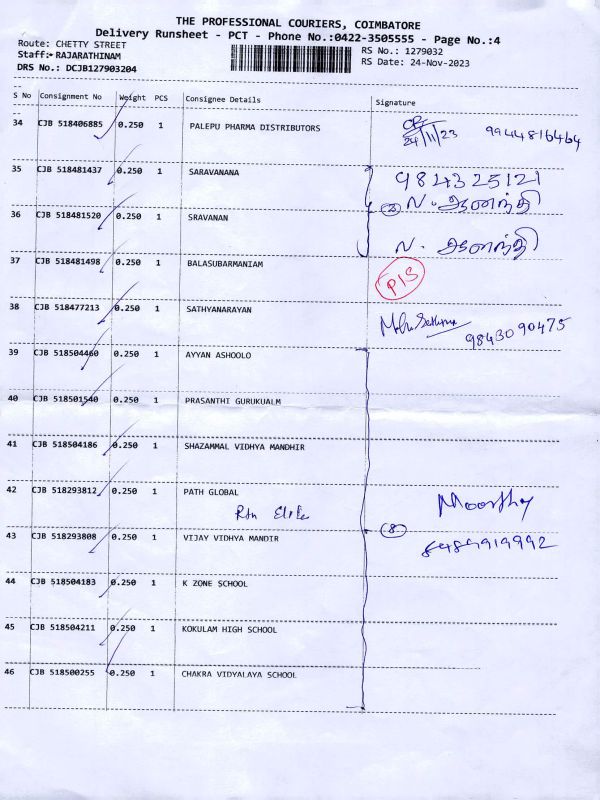 THE PROFESSIONAL COURIERS, COIMBATORE
Delivery Runsheet - PCT - Phone No.:0422-3505555 - Page No.:4
Route: CHETTY STREET RS No.: 1279032
Staff:- RAJARATHINAM RS Date: 24-Nov-2023
DRS No.: DCJB127903204
S No Consignment No Weight PCS Consignee Details Signature
34 CJB 518406885 0.250 1 PALEPU PHARMA DISTRIBUTORS 24/11/23 9944816464
35 CJB 518481437 0.250 1 SARAVANANA 984325121
② N. ஆனந்தி
36 CJB 518481520 0.250 1 SRAVANAN
N. ஆனந்தி
37 CJB 518481498 0.250 1 BALASUBARMANIAM PIS
38 CJB 518477213 0.250 1 SATHYANARAYAN 9843090475
39 CJB 518504460 0.250 1 AYYAN ASHOOLO
40 CJB 518501540 0.250 1 PRASANTHI GURUKUALM
41 CJB 518504186 0.250 1 SHAZAMMAL VIDHYA MANDHIR
42 CJB 518293812 0.250 1 PATH GLOBAL Moorthy
⑧
43 CJB 518293808 0.250 1 VIJAY VIDHYA MANDIR 8489919992
44 CJB 518504183 0.250 1 K ZONE SCHOOL
45 CJB 518504211 0.250 1 KOKULAM HIGH SCHOOL
46 CJB 518500255 0.250 1 CHAKRA VIDYALAYA SCHOOL